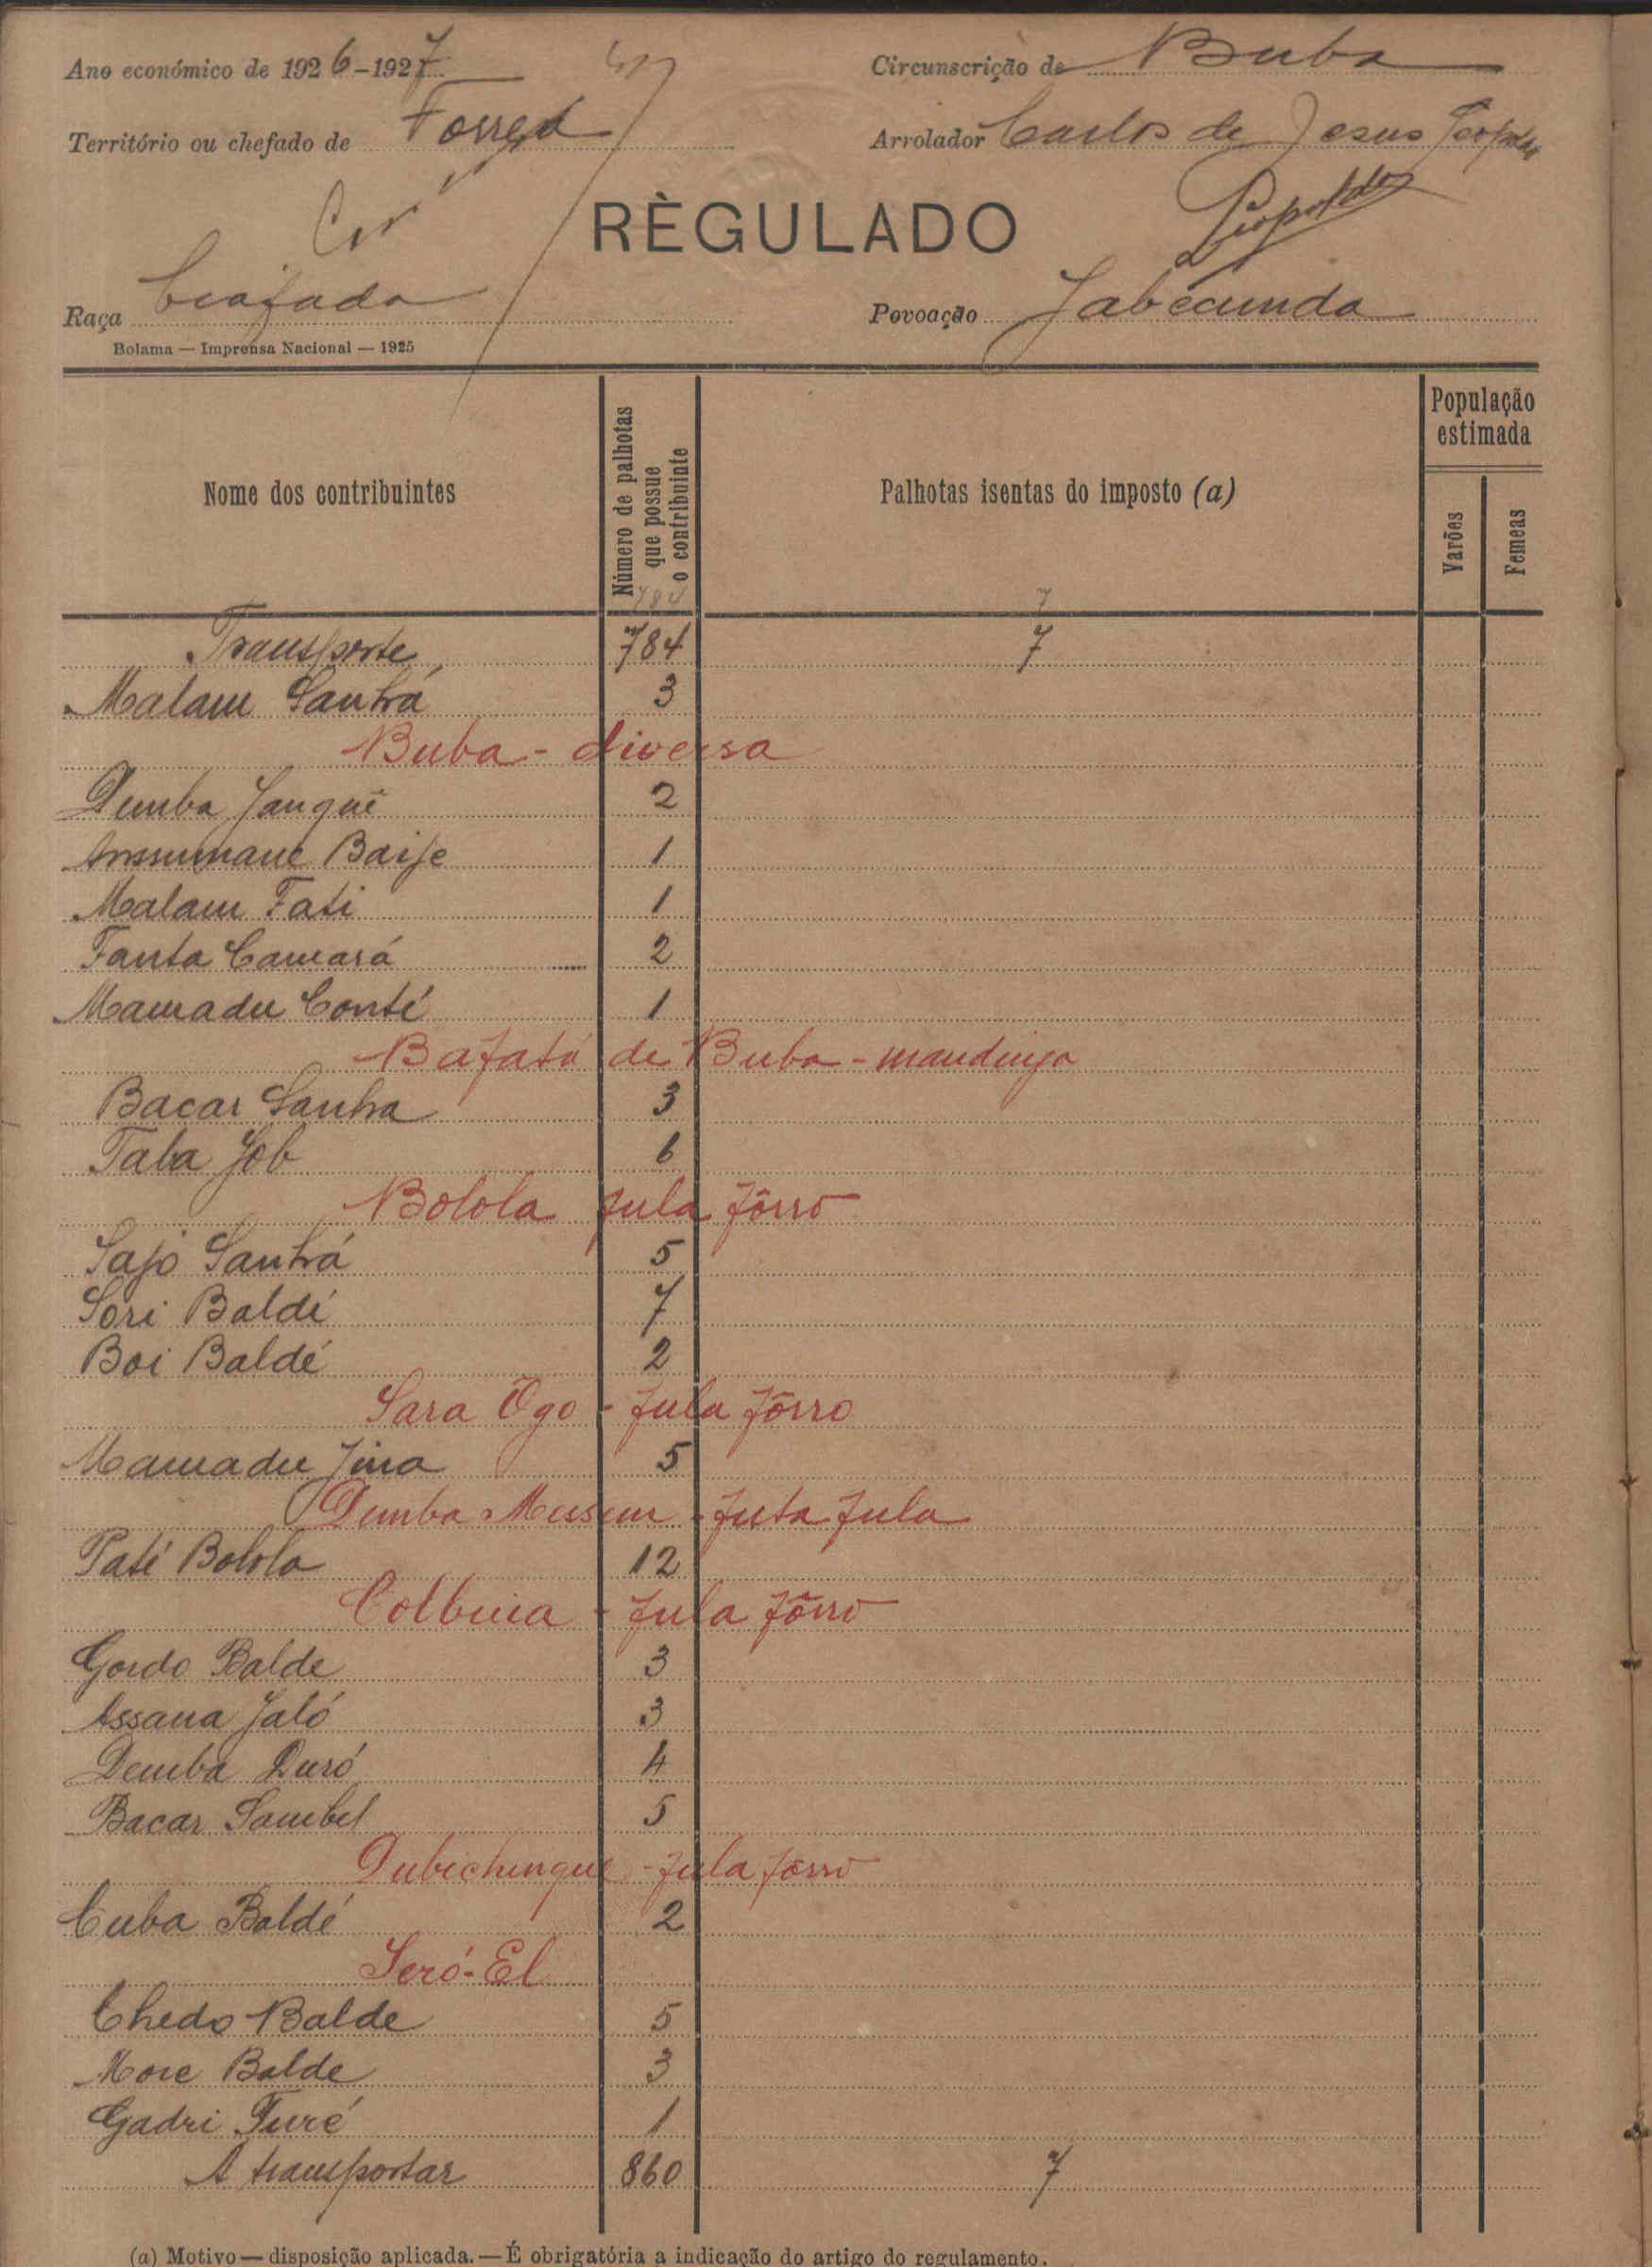 Ano económico de 1926-1927
Circunscrição de Buba
Território ou chefado de Forreá
Arrolador Carlos de Jesus Leopoldo
Leopoldo
RÈGULADO
Raça Beafada
Povoação Jabécunda
Bolama — Imprensa Nacional — 1925
Nome dos contribuintes
Número de palhotas que possue o contribuinte
Palhotas isentas do imposto (a)
População estimada
Varões
Femeas
784 7
Transporte 784 7
Malam Sanhá 3
Buba - diversa
Demba Janquê 2
Anssumane Baije 1
Malam Fati 1
Fanta Camará 2
Mamadu Conté 1
Bafatá de Buba - mandinga
Bacar Sanha 3
Taba Job 6
Bolola fula fôrro
Sajo Sanhá 5
Sori Baldé 7
Boi Baldé 2
Sara Ôgo - fula fôrro
Mamadu Jina 5
Demba Mussum - futa fula
Paté Bolola 12
Colbuia - fula fôrro
Gordo Balde 3
Assana Jaló 3
Demba Duró 4
Bacar Sambel 5
Dubichenque - fula fôrro
Cuba Baldé 2
Seró-El
Chedo Balde 5
More Balde 3
Gadri Turé 1
A transportar 860 7
(a) Motivo — disposição aplicada. — É obrigatória a indicação do artigo do regulamento.